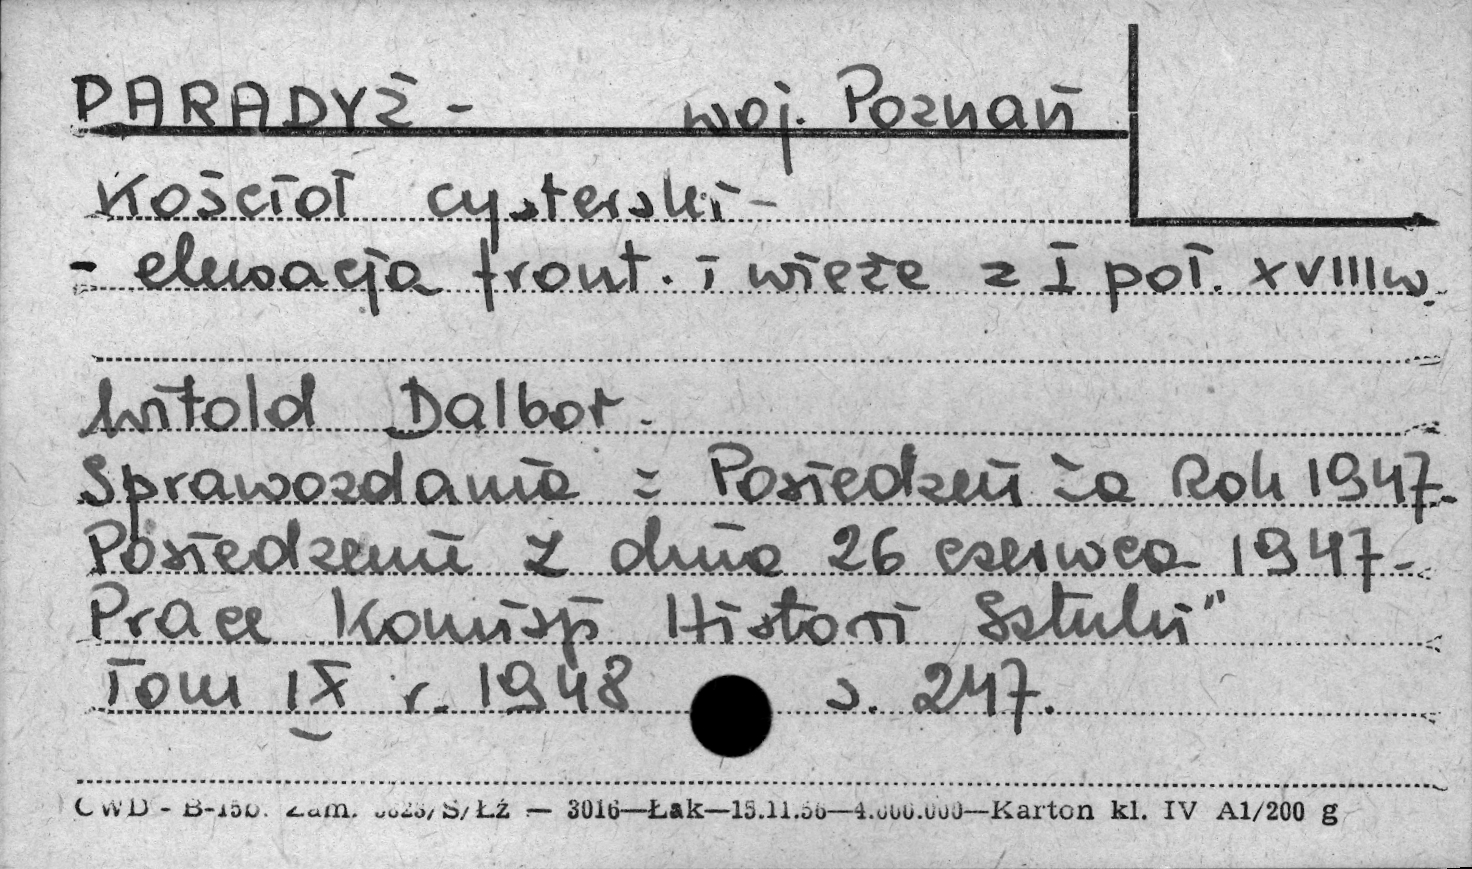 PARADYŻ - woj. Poznań
Kościół cysterski -
- elewacja front. i wieże z I poł. XVIII w.
Witold Dalbor.
Sprawozdania z Posiedzeń za Rok 1947.
Posiedzenie z dnia 26 czerwca 1947 -
Prace Komisji Historii Sztuki"
Tom IX r. 1948 s. 247.
CWD - B-15b. Zam. S/Łż — 3016—Łak—15.11.56—4.000.000—Karton kl. IV A1/200 g